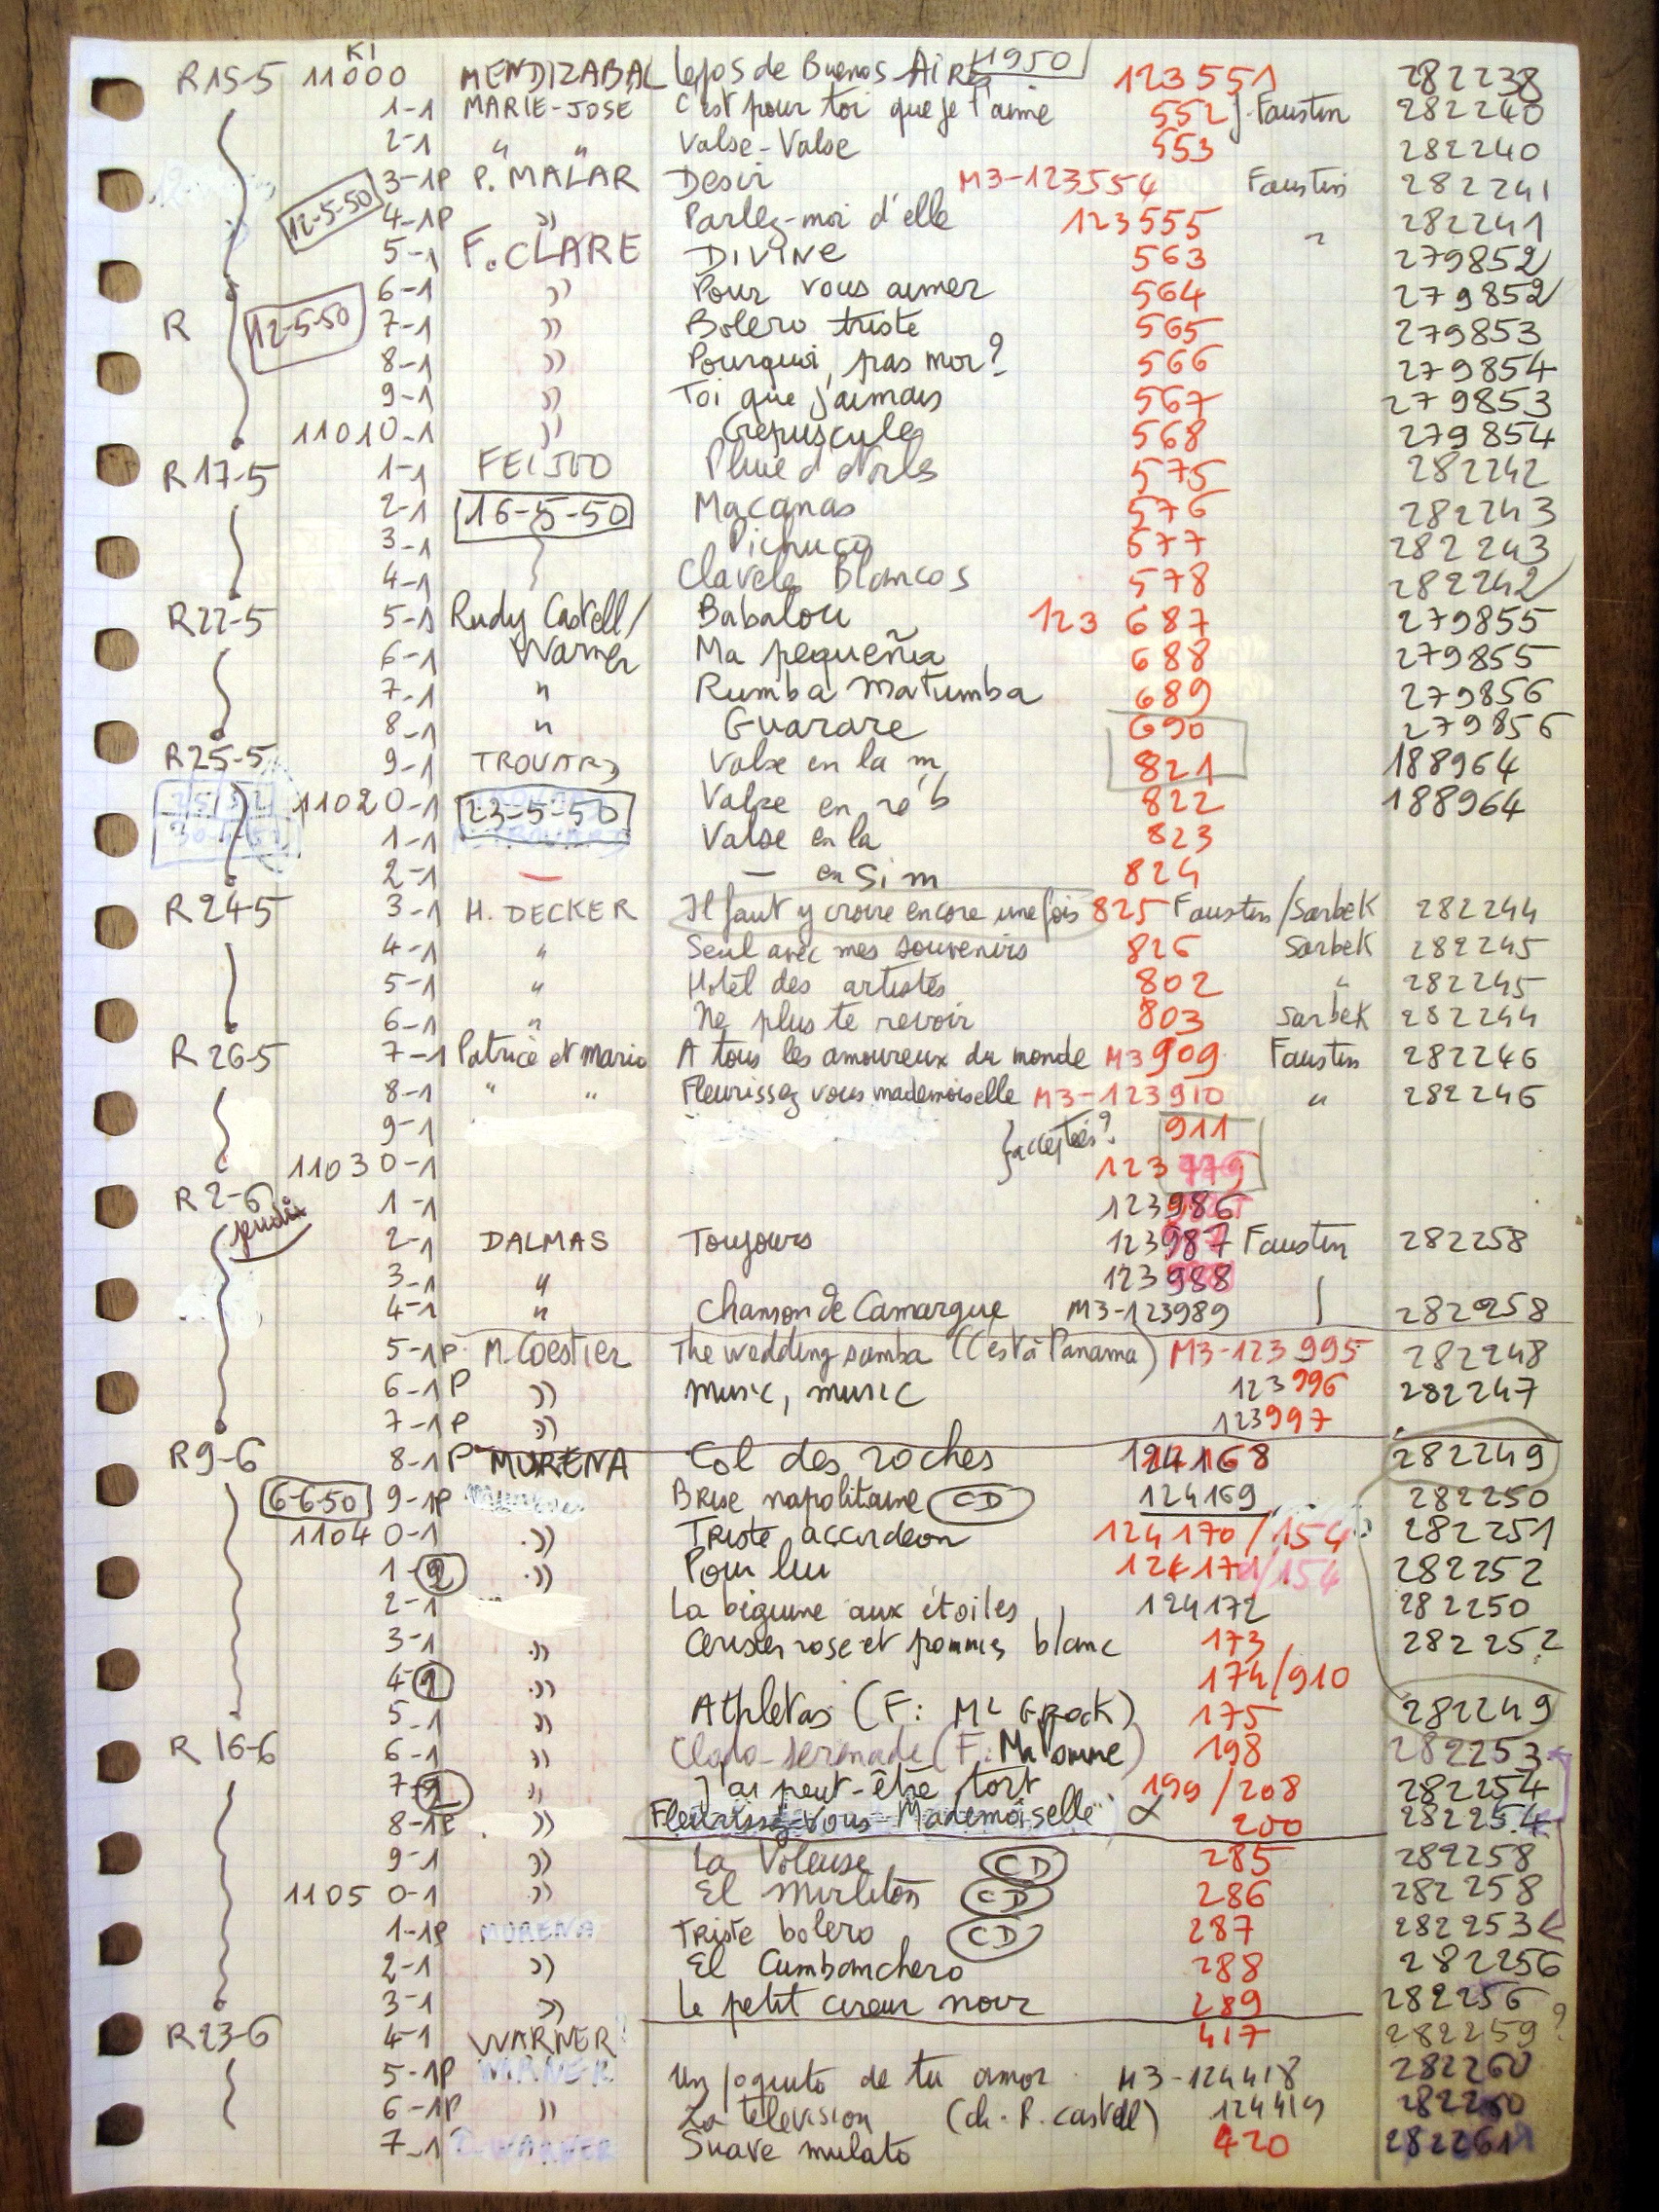 R 15-5 KI 11000 MENDIZABAL lejos de Buenos-AiREs 1950 123551 282238
1-1 MARIE-JOSE C'est pour toi que je t'aime 552 } Faustin 282240
2-1 " " Valse-Valse 553 282240
3-1P P. MALAR Desir M3-123554 Faustin 282241
12-5-50 4-1P " Parlez-moi d'elle 123555 " 282241
5-1 F. CLARE DIVINE 563 279852
6-1 " Pour vous aimer 564 279852
R 12-5-50 7-1 " Bolero triste 565 279853
8-1 " Pourquoi pas moi? 566 279854
9-1 " Toi que j'aimais 567 279853
11010-1 " Crepuscule 568 279854
R 17-5 1-1 FEIJOO Pluie d' 575 282242
2-1 16-5-50 Macanas 576 282243
3-1 Pichuco 577 282243
4-1 Claveles Blancos 578 282242
R 22-5 5-1 Rudy Castell/ Babalou 123 687 279855
6-1 Warner Ma pequeña 688 279855
7-1 " Rumba matumba 689 279856
8-1 " Guarare 690 279856
R 25-5 9-1 TROUARD Valse en la m 821 188964
11020-1 23-5-50 Valse en ré b 822 188964
1-1 Valse en la 823
2-1 — — en Si m 824
R 24-5 3-1 H. DECKER Il faut y croire encore une fois 825 Faustin/Sarbek 282244
4-1 " Seul avec mes souvenirs 826 Sarbek 282245
5-1 " Hotel des artistes 802 " 282245
6-1 " Ne plus te revoir 803 Sarbek 282244
R 26-5 7-1 Patrice et Mario A tous les amoureux du monde M3 909 Faustin 282246
8-1 " " Fleurissez vous mademoiselle M3-123910 " 282246
9-1 } acceptés? 911
11030-1 123 779
R 2-6 1-1 123986
2-1 DALMAS Toujours 123987 Faustin 282258
3-1 " 123988
4-1 " Chanson de Camargue M3-123989 282258
5-1P M. Coestier The wedding samba (C'est à Panama) M3-123995 282248
6-1P " Music, music 123996 282247
7-1P " 123997
R 9-6 8-1P MURENA Col des roches 124168 282249
6-6-50 9-1P Brise napolitaine CD 124169 282250
11040-1 " TRiste accordeon 124170/154 282251
1-2 " Pour lui 124171/154 282252
2-1 La biguine aux étoiles 124172 282250
3-1 " Cerisiers rose et pommiers blanc 173 282252
4-2 " 174/910
5-1 " Athletas (F: Ml GRock) 175 282249
R 16-6 6-1 " Clopo-serenade (F. Ma Pomme) 198 282253
7-2 " J'ai peut-être tort 199/208 282254
8-1P " Fleurissez-vous Mademoiselle 200 282254
9-1 " La Voleuse CD 285 282258
11050-1 " El Mirliton CD 286 282258
1-1P MURENA TRiste bolero CD 287 282253
2-1 " El Cumbanchero 288 282256
3-1 " Le petit cireur noir 289 282256
R 23-6 4-1 WARNER 417 282259 ?
5-1P WARNER Un poquito de tu amor M3-124418 282260
6-1P " La télévision (ch. R. Castell) 124419 282260
7-1 WARNER Suave mulato 420 282261